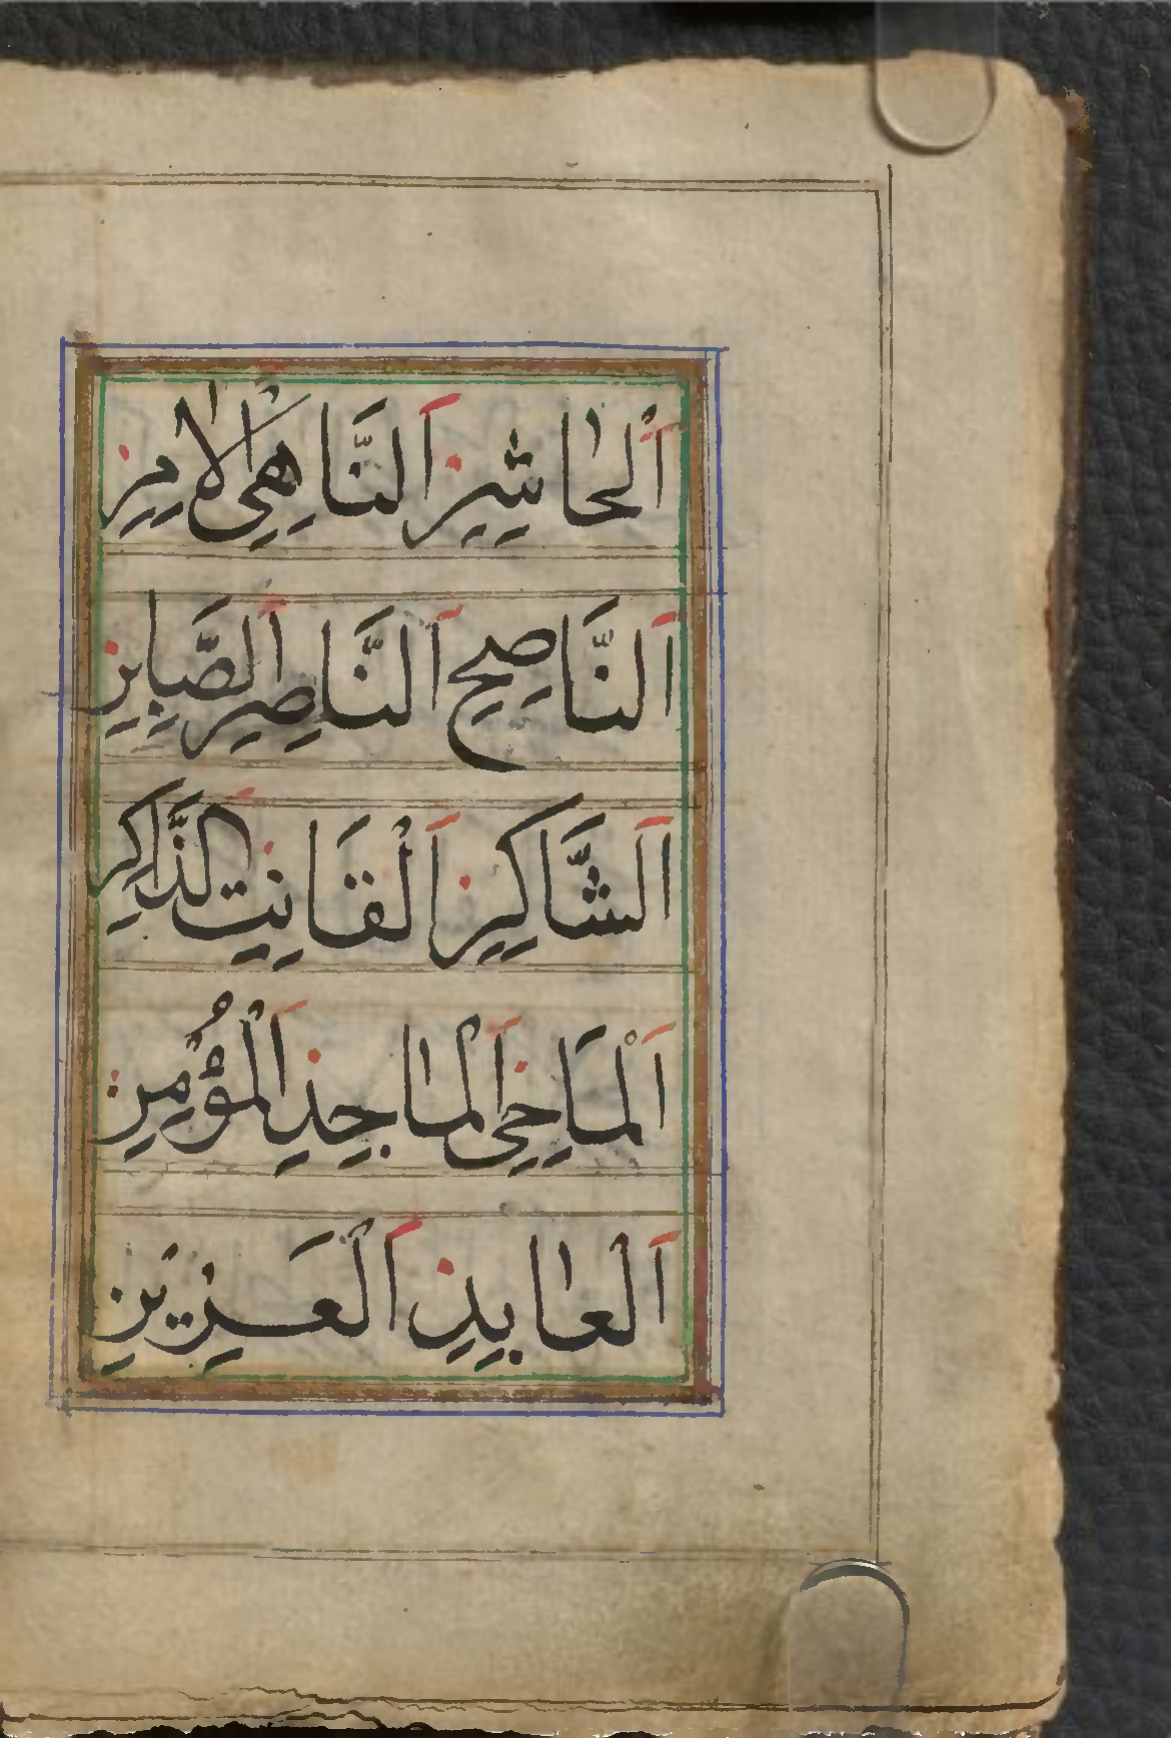 اَلْحٰاشِرِ اَلنَّاهِي الْاٰمِرِ
اَلنَّاصِحِ اَلنَّاصِرِ الصَّابِرِ
اَلشَّاكِرِ اَلْقَانِتِ الذَّاكِرِ
اَلْمَاحِي اَلْمٰاجِدِ الْمُؤْمِنِ
اَلْعٰابِدِ اَلْعَزِيزِ